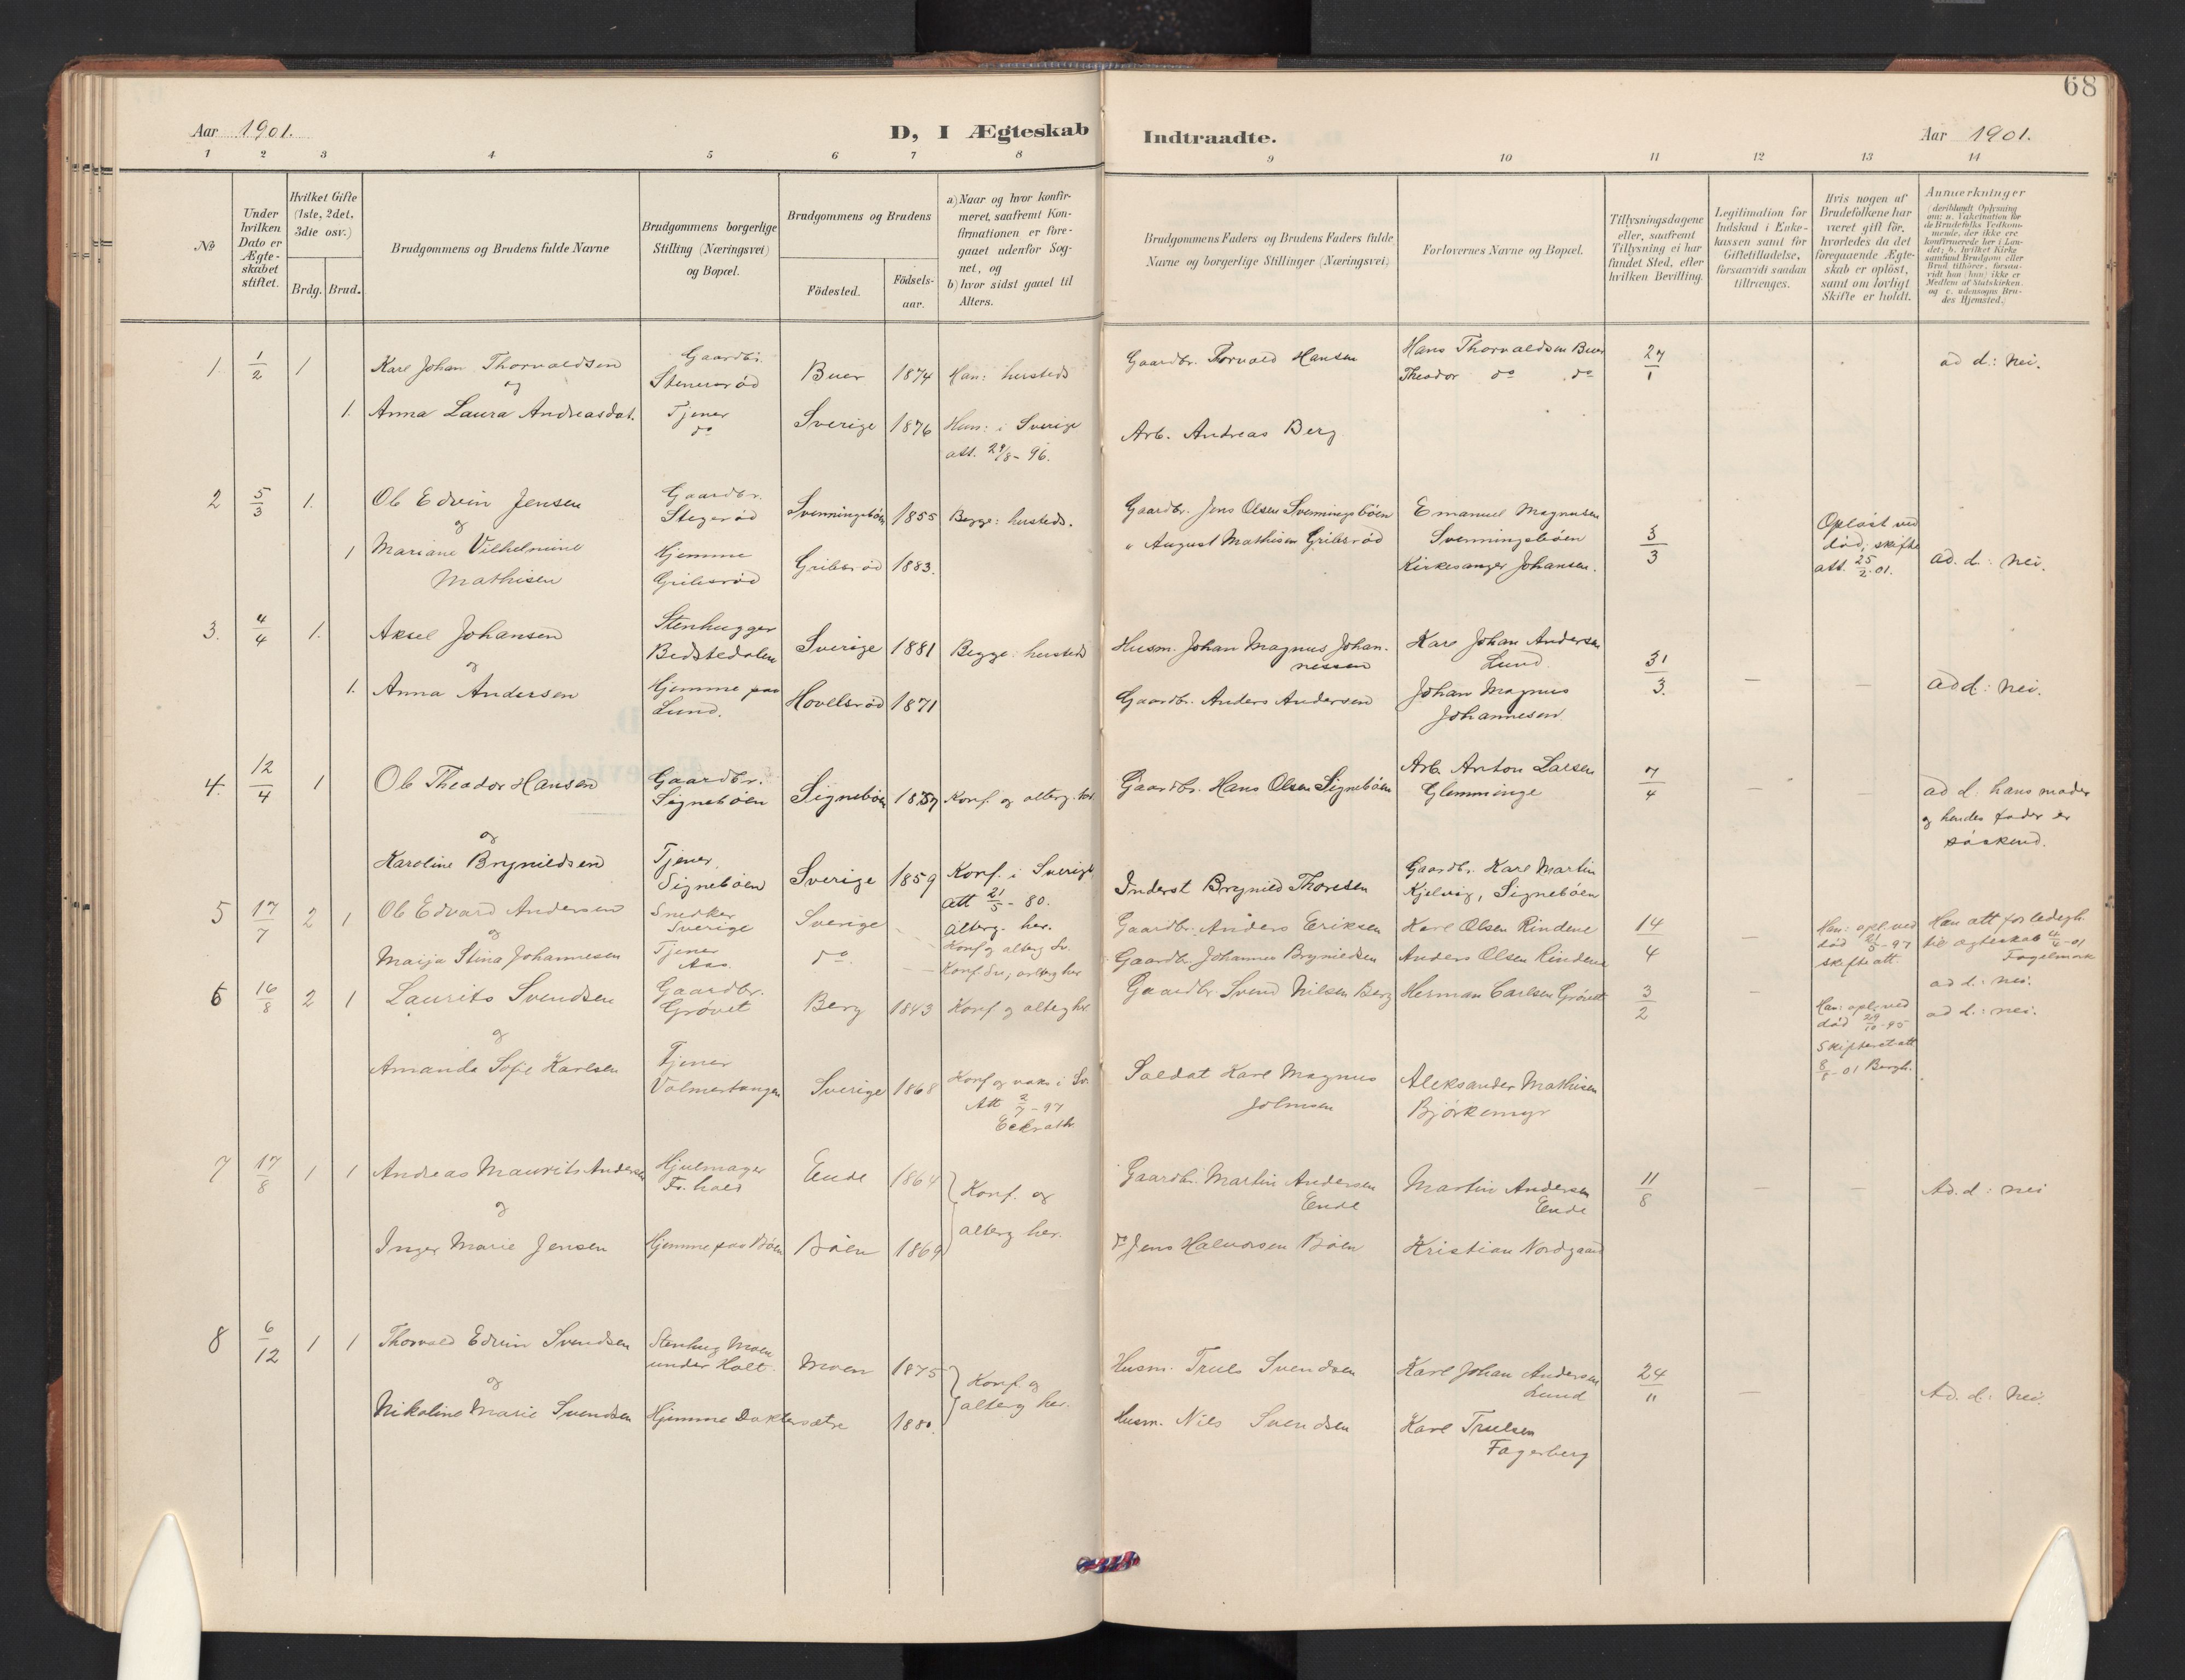 68
Aar 1901.
D, I Ægteskab
Indtraadte.
Aar 1901.
1 2 3 4 5 6 7 8 9 10 11 12 13 14
No
Under
hvilken
Dato er
Ægte-
skabet
stiftet.
Hvilket Gifte
(1ste, 2det,
3die osv.)
Brdg. Brud.
Brudgommens og Brudens fulde Navne
Brudgommens borgerlige
Stilling (Næringsvei)
og Bopæl.
Brudgommens og Brudens
Födested.
Födsels-
aar.
a) Naar og hvor konfir-
meret, saafremt Kon-
firmationen er fore-
gaaet udenfor Sog-
net, og
b) hvor sidst gaaet til
Alters.
Brudgommens Faders og Brudens Faders fulde
Navne og borgerlige Stillinger (Næringsvei)
Forlovernes Navne og Bopæl.
Tillysningsdagene
eller, saafremt
Tillysning ei har
fundet Sted, efter
hvilken Bevilling.
Legitimation for
Indskud i Enke-
kassen samt for
Giftetilladelse,
forsaavidt saadan
tiltrænges.
Hvis nogen af
Brudefolkene har
været gift för,
hvorledes da det
foregaaende Ægte-
skab er oplöst,
samt om lovligt
Skifte er holdt.
Anmærkninger
(deriblandt Oplysning
om: a. Vakcination for
de Brudefolks Vedkom-
mende, der ikke ere
konfirmerede her i Lan-
det; b. hvilket Kirke
samfund Brudgom eller
Brud tilhörer, forsaa-
vidt han (hun) ikke er
Medlem af Statskirken
og c. udensogns Bru-
des Hjemsted.)
1 1/2 1 Karl Johan Thorvaldsen
og
1. Anna Laura Andreasdat.
Gaardbr.
Stenersrød
Tjener
do
Buer 1874 Han: hersteds
Sverige 1876 Hun: i Sverige
att. 29/8 - 96.
Gaardbr. Torvald Hansen
Arb. Andreas Berg
Hans Thorvaldsen Buer
Theodor do do
27/1
ad d.: nei.
2 5/3 1. Ole Edvin Jensen
og
1 Mariane Vilhelmine
Mathisen
Gaardbr.
Stegerød
Hjemme
Gribsrød
Svenningsbøen 1855 Begge: hersteds.
Gribsrød 1883.
Gaardbr. Jens Olsen Svenningsbøen
" August Mathisen Gribsrød
Emanuel Magnusen
Svenningsbøen
Kirkesanger Johansen.
3/3
Opløst ved
død; skifte
att. 25/2-01.
ad. d.: nei.
3. 4/4 1. Aksel Johansen
og
1. Anna Andersen
Stenhugger
Bedstedalen
Hjemme paa
Lund.
Sverige 1881 Begge: hersteds
Hovelsrød 1871
Husm. Johan Magnus Johan-
nessen
Gaardbr. Anders Andersen
Karl Johan Andersen
Lund.
Johan Magnus
Johannesen.
31/3. — —
ad d: nei.
4. 12/4 1 Ole Theodor Hansen
og
Karoline Brynildsen
Gaardbr.
Signebøen
Tjener
Signebøen
Signebøen 1857 Konf. og alterg. her.
Sverige 1859 Konf. i Sverige
att 21/5 - 80.
alterg. her.
Gaardbr. Hans Olsen Signebøen
Inderst Brynild Thoresen
Arb. Anton Larsen
Glemminge
Gaardbr. Karl Martin
Kjelvig, Signebøen
7/4 — —
ad d: hans moder
og hendes fader er
søskend.
5 17/7 2 1 Ole Edvard Andersen
og
Maija Stina Johannesen
Snedker
Sverige
Tjener
Aas
Sverige -
do. - -
Konf og alterg Sv.
Konf Sv, alterg her
Gaardbr. Anders Eriksen
Gaardbr Johannes Brynildsen
Karl Olsen Rindene
Anders Olsen Rindene
14
4 —
Han: opl. ved
død 21/5-97
skifteatt.
Han att for ledigh.
til ægteskab 4/6-01
Fagelmark
ad d: nei.
6 16/8 2 1 Laurits Svendsen
og
Amanda Sofie Karlsen
Gaardbr.
Grøvet
Tjener
Volmertangen
Berg 1843 Konf og alterg her.
Sverige 1868 Konf og vaks i Sv.
Att 2/7 - 97
Gaardbr. Svend Nilsen Berg
Soldat Karl Magnus
Johnsen
Herman Carlsen Grøvet
Aleksander Mathisen
Bjørkemyr
3/2 —
Han: opl. ved
død 29/10-95
Skifteretatt
8/8-01 Bergh.
ad d.: nei.
7 17/8 1 1 Andreas Maurits Andersen
og
Inger Marie Jensen
Hjulmager
Fr.hald
Hjemme paa Bøen
Ende 1864
Bøen 1869
Konf. og
alterg her.
Gaardbr. Martin Andersen
Ende
do Jens Halvorsen Bøen
Martin Andersen
Ende
Kristian Nordgaard
11/8 — —
Ad. d: nei
8 6/12 1 1 Thorvald Edvin Svendsen
og
Nikoline Marie Svendsen
Stenhug Moen
under Holt.
Hjemme Doktersætre
Moen 1875
1880.
Konf. og
alterg her.
Husm. Truls Svendsen
Husm. Nils Svendsen
Karl Johan Andersen
Lund
Karl Trulsen
Fagerberg
24/11 —
Ad. d: nei.